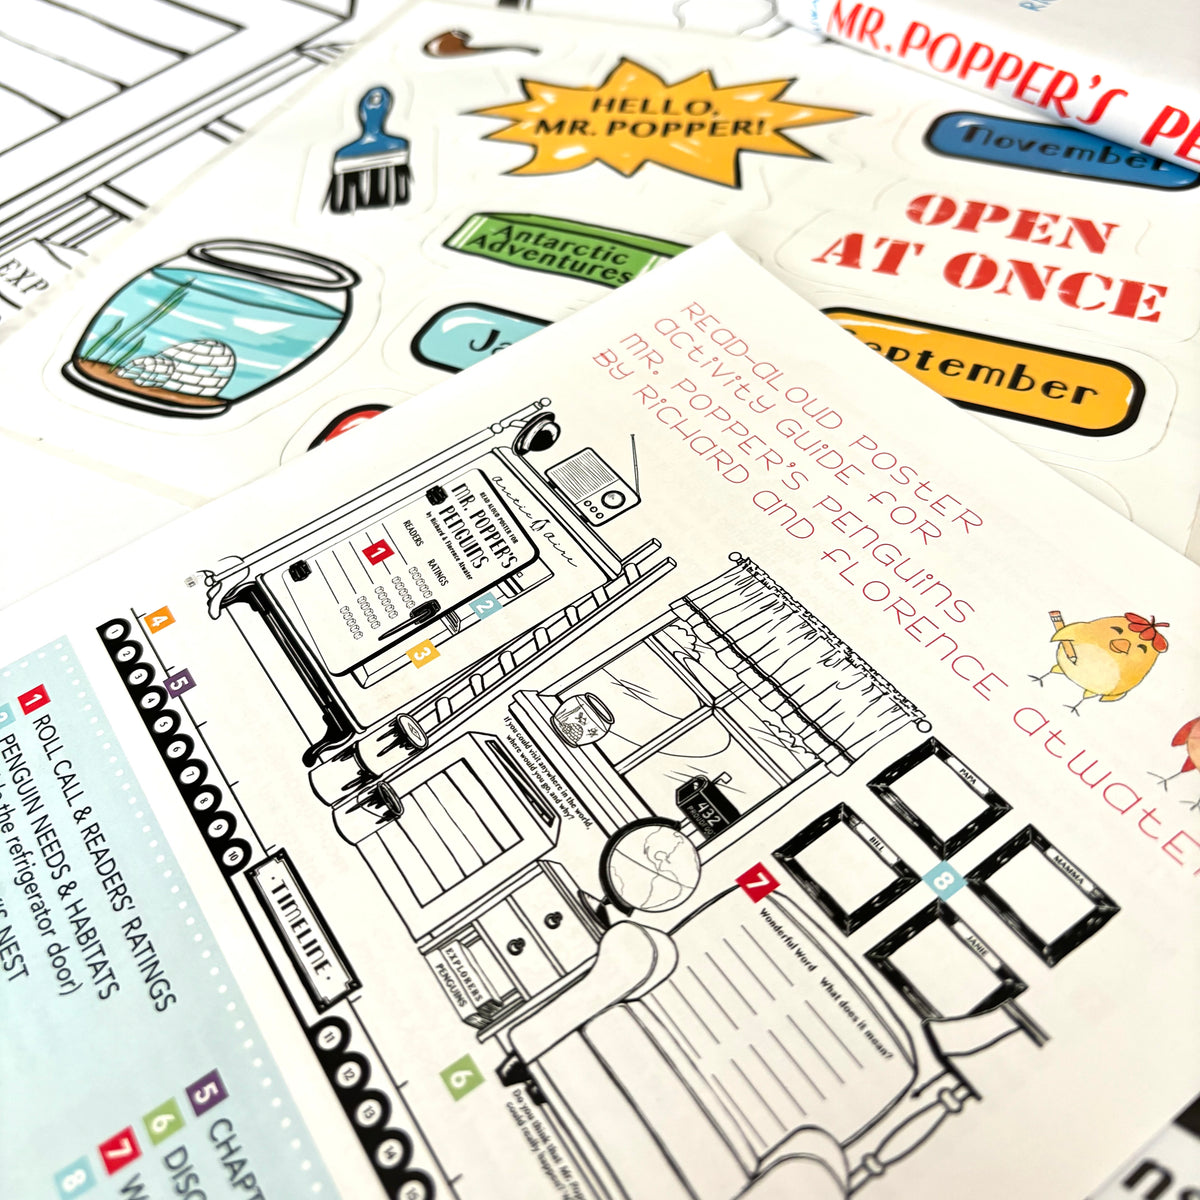 MR. POPPER'S PE
HELLO,
MR. POPPER!
November
OPEN
AT ONCE
Antarctic
Adventures
Ja
eptember
EXP
READ-ALOUD POSTER
ACTIVITY GUIDE FOR
MR. POPPER'S PENGUINS
BY RICHARD AND FLORENCE ATWATE
Arctic Aire
READ-ALOUD POSTER FOR
MR. POPPER'S
PENGUINS
by Richard & Florence Atwater
READERS
RATINGS
1
2
3
4
5
If you could visit anywhere in the world,
where would you go, and why?
432
PROUDFOOT
PAPA
MAMMA
BILL
JANIE
8
7
Wonderful Word
What does it mean?
EXPLORERS
PENGUINS
6
Do you think that Mr. Pop
could really happen?
1 2 3 4 5 6 7 8 9 10
TIMELINE
11 12 13 14 15
1 ROLL CALL & READERS' RATINGS
2 PENGUIN NEEDS & HABITATS
the refrigerator door)
'S NEST
5 CHAPT
6 DISC
7 W
8